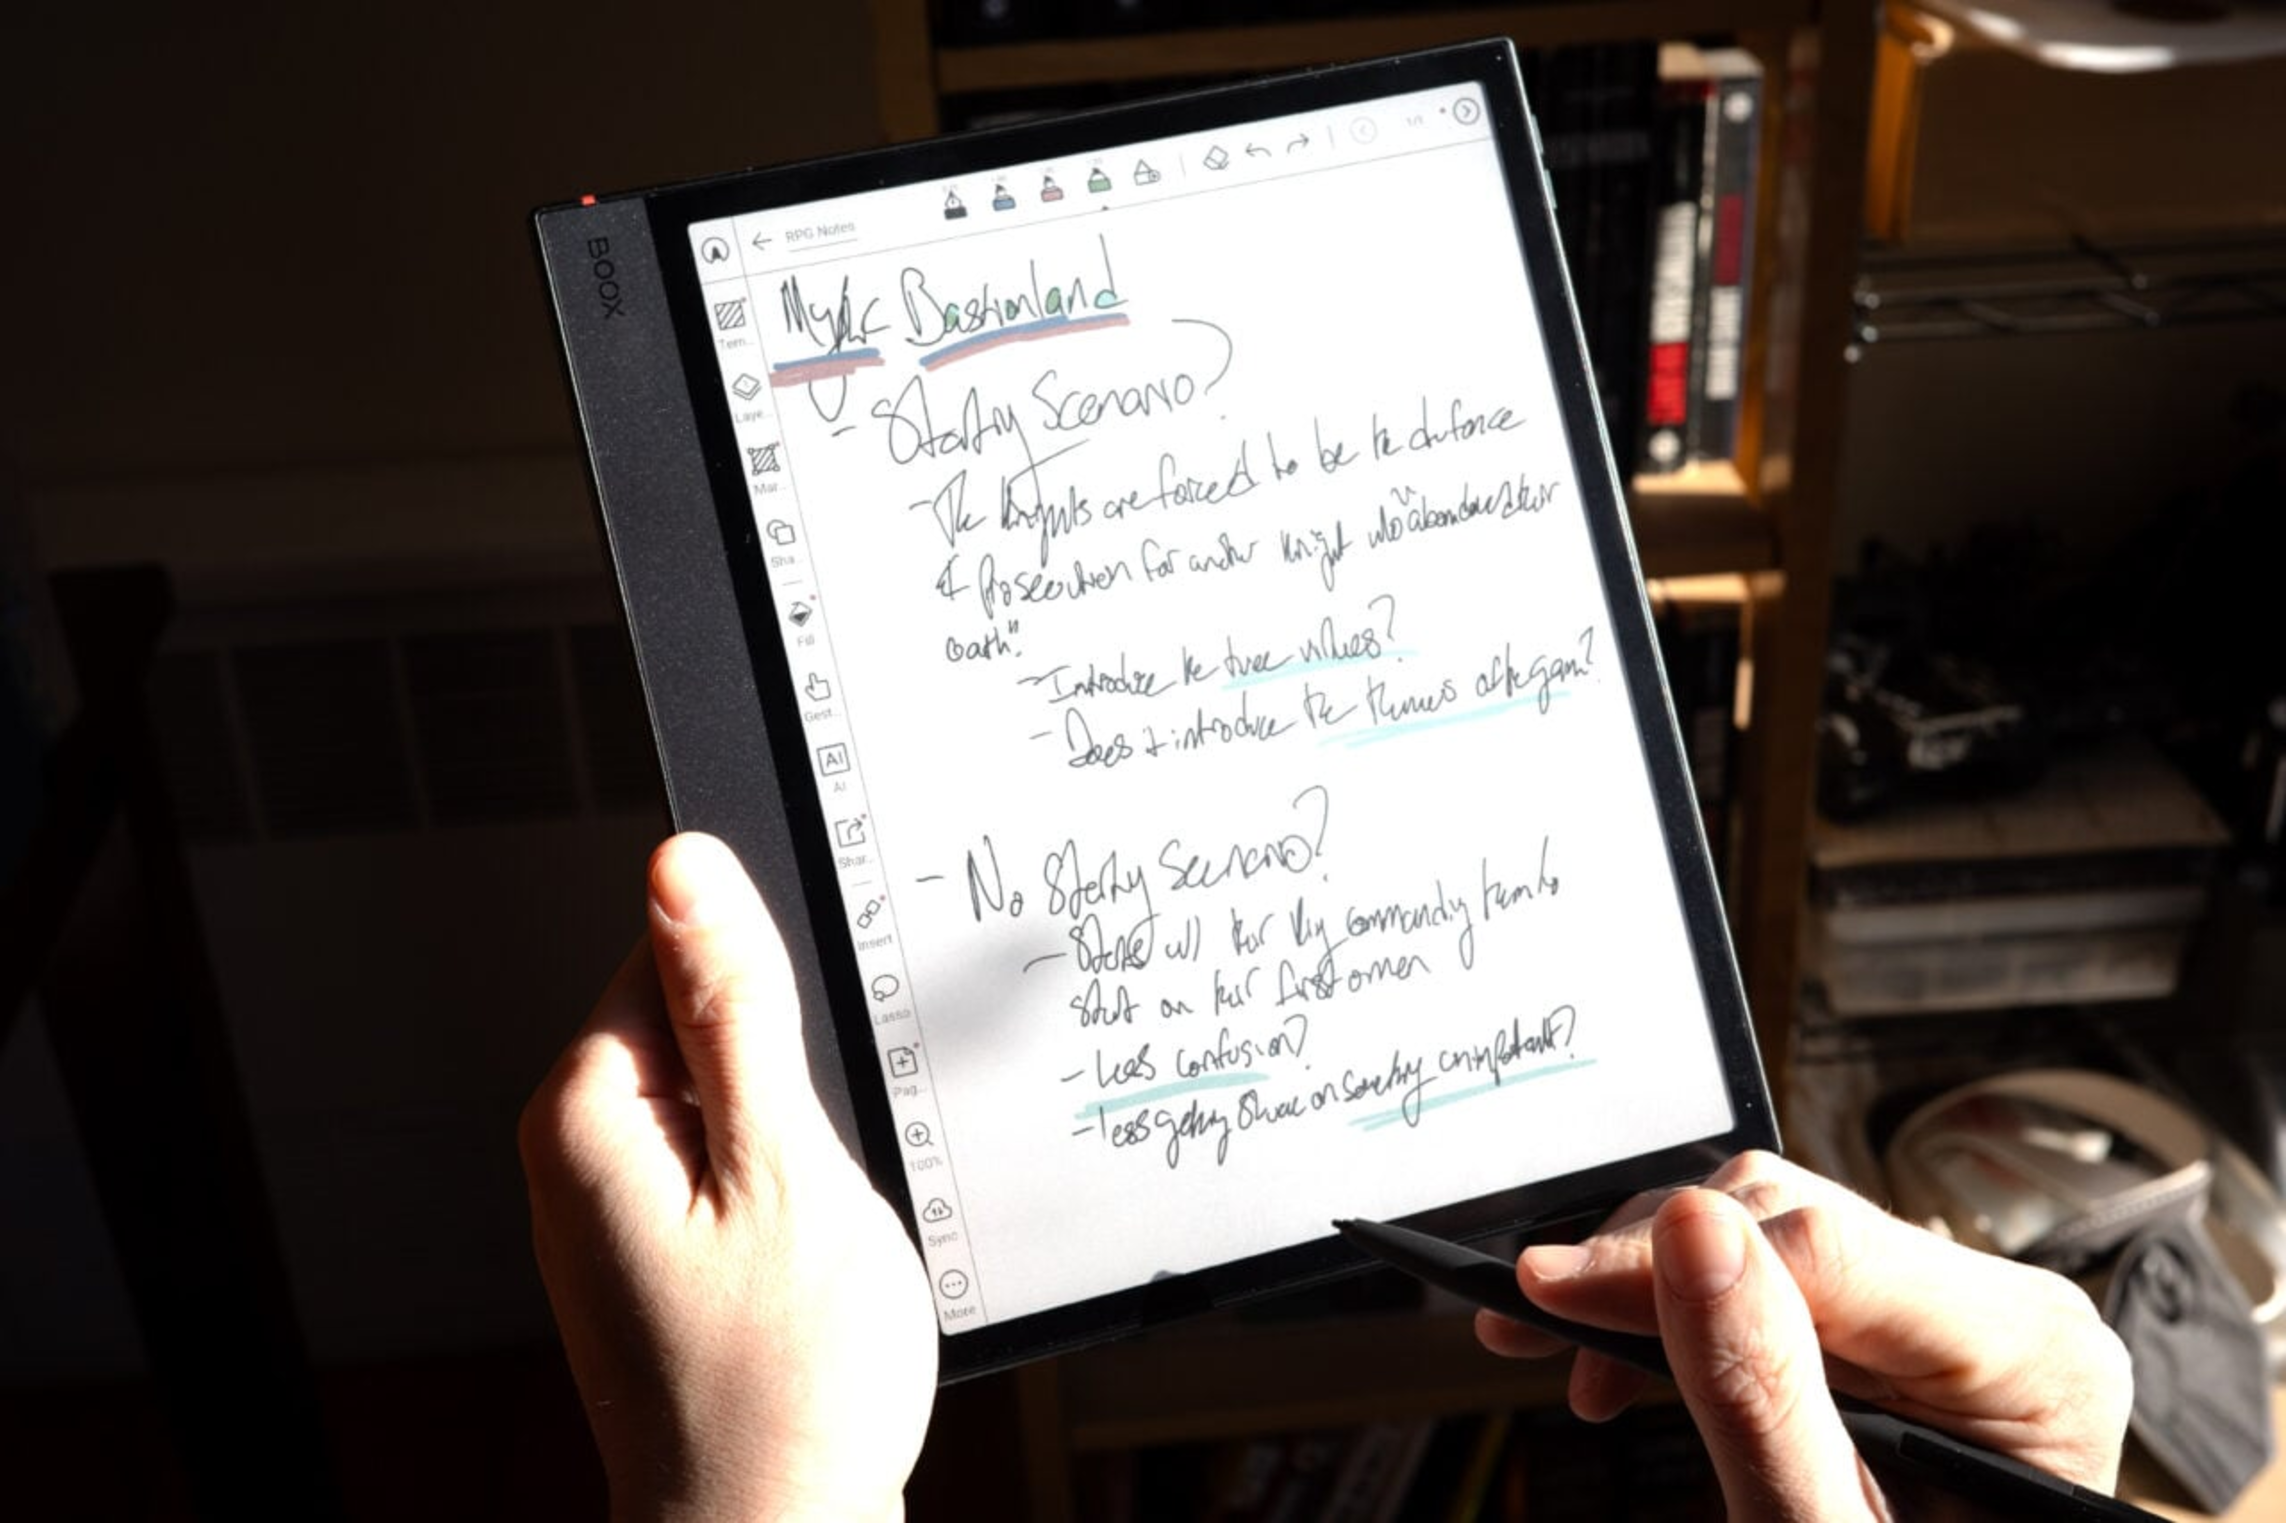 BOOX
RPG Notes
1/1
Tem...
Laye...
Mar...
Sha...
Fill
Gest...
AI
AI
Shar...
Insert
Lasso
Pag...
100%
Sync
More
Mythic Bastionland
- Starting Scenario?
- The knights are forced to be the defence
& Prosecution for another knight who "abandoned their
oath".
- Introduce the three virtues?
- Does it introduce the themes of the game?
- No Starting Scenario?
- Starts w/ their king commanding them to
start on their first omen
- Less confusion?
- less getting stuck on something unimportant?